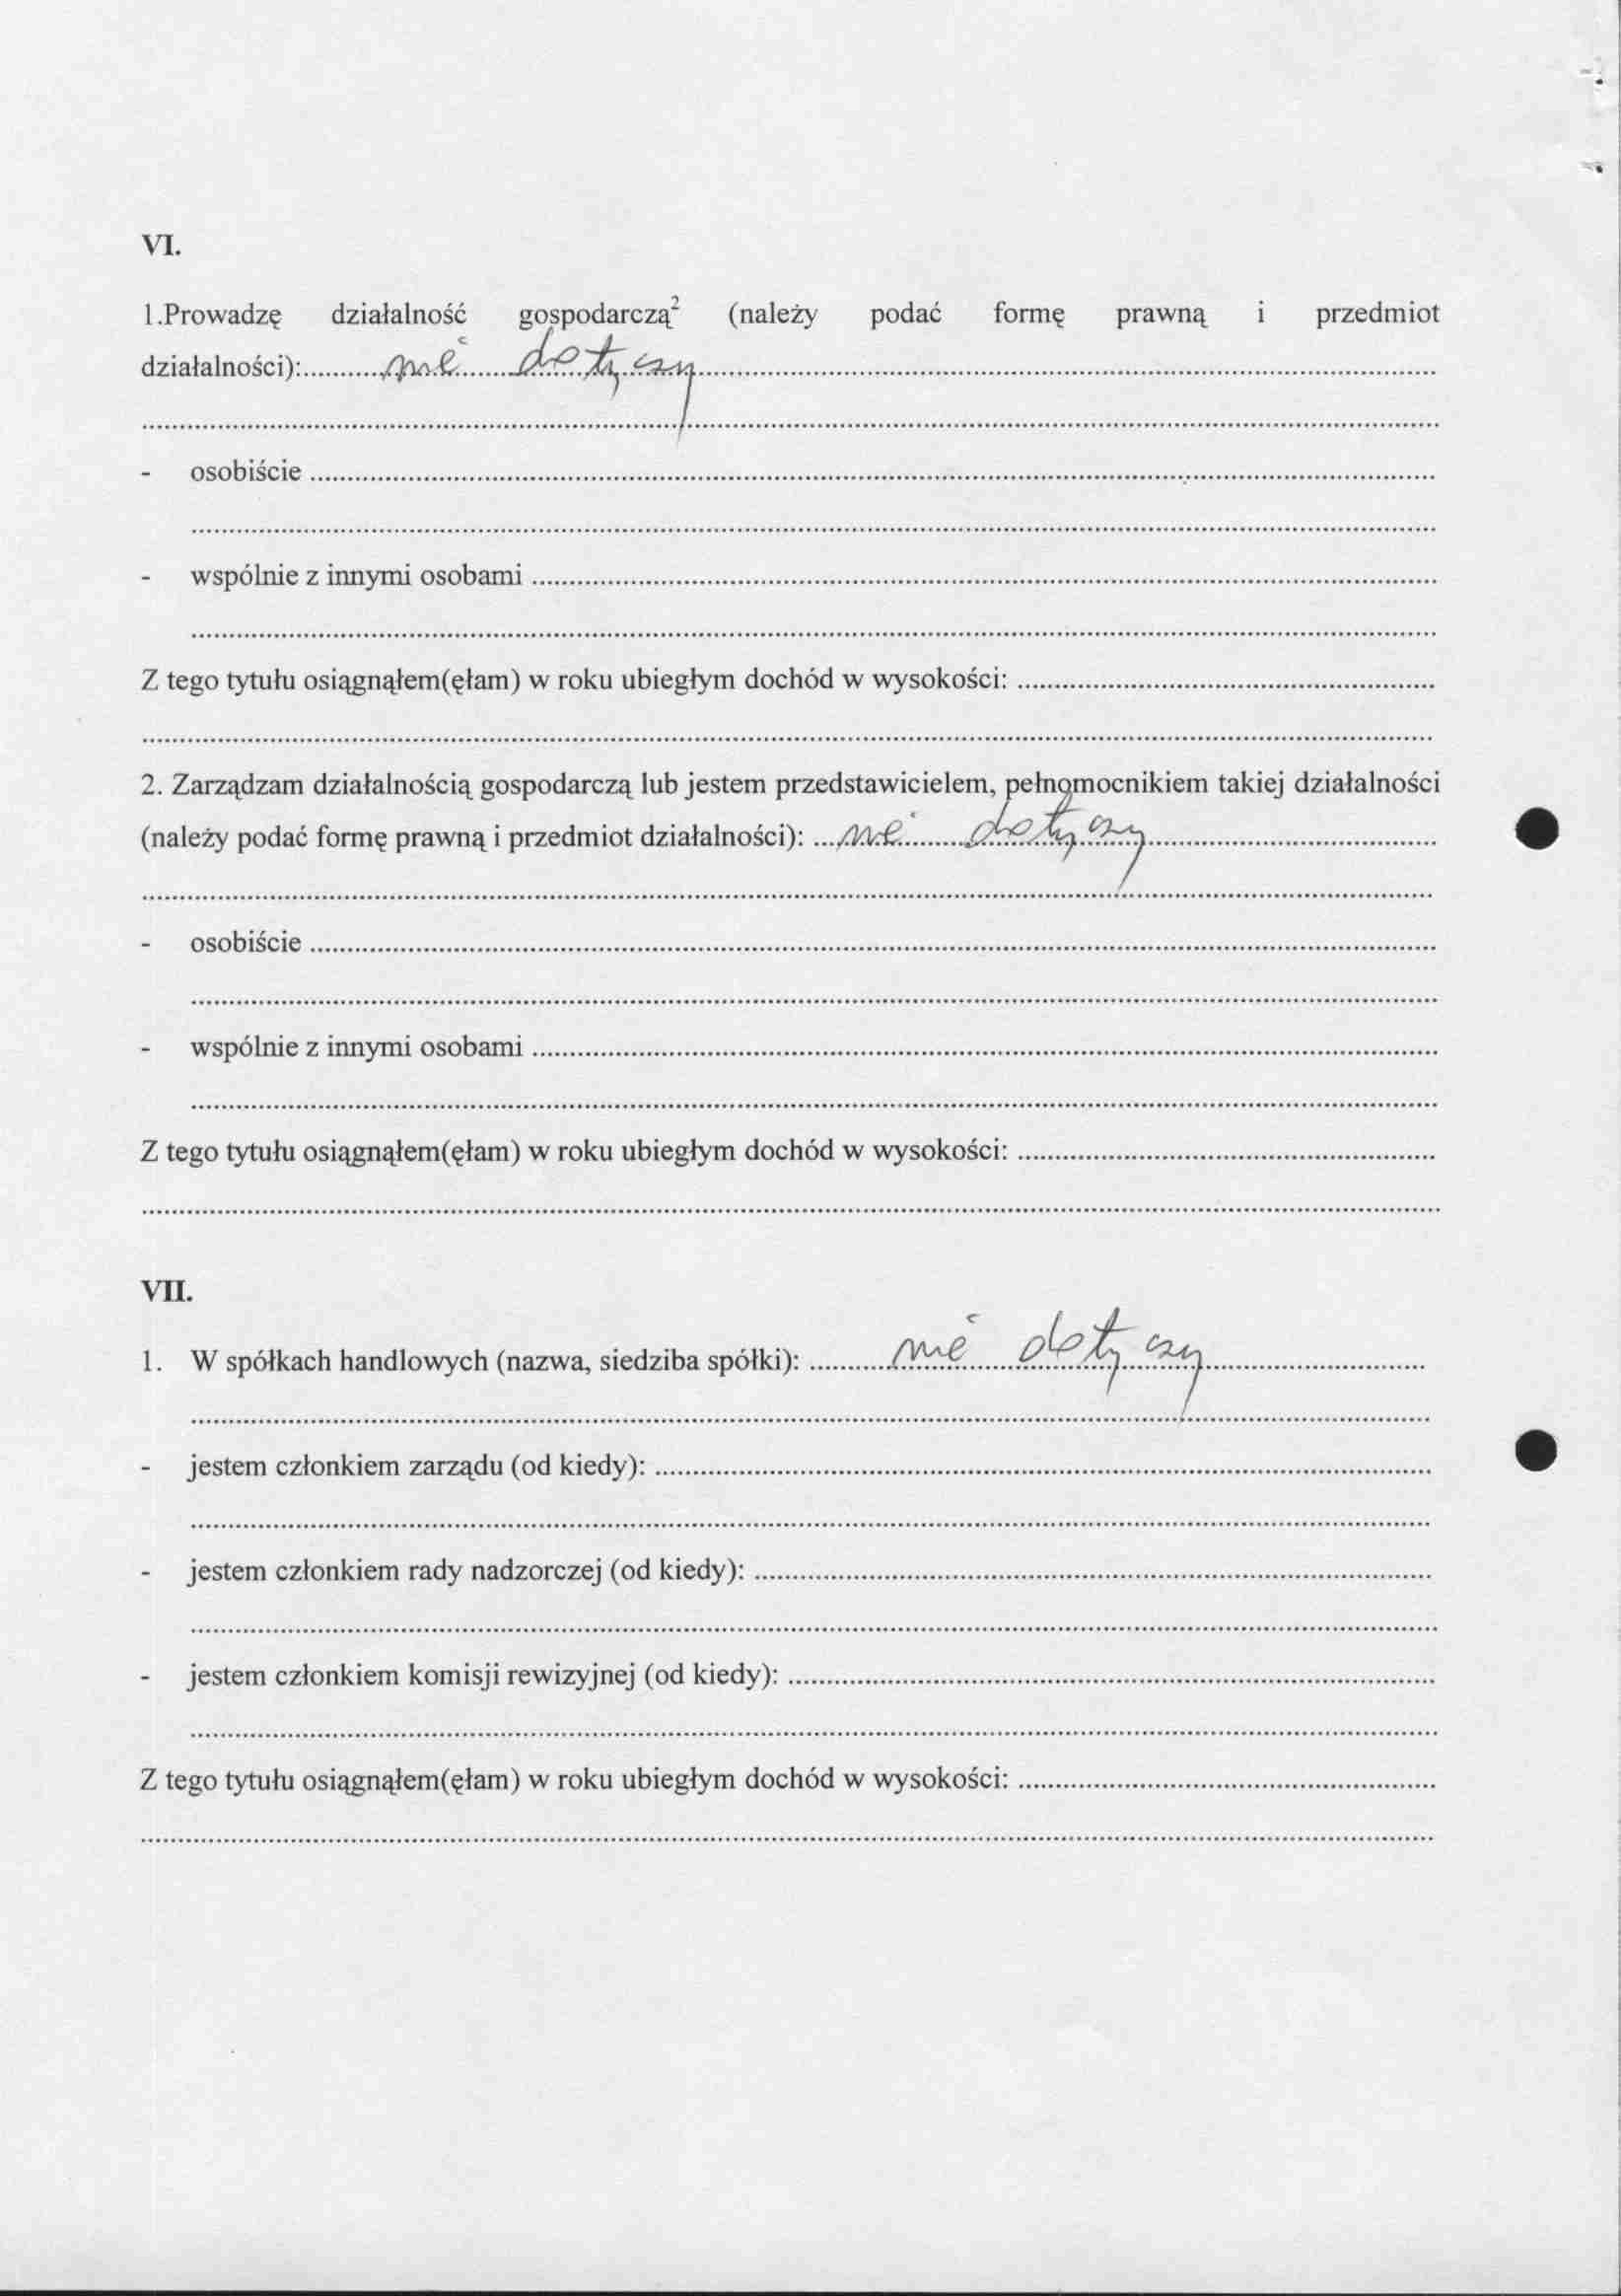 VI.
1.Prowadzę działalność gospodarczą² (należy podać formę prawną i przedmiot
działalności):..........nie.......dotyczy..........
- osobiście ..........
- wspólnie z innymi osobami ..........
Z tego tytułu osiągnąłem(ęłam) w roku ubiegłym dochód w wysokości: ..........
2. Zarządzam działalnością gospodarczą lub jestem przedstawicielem, pełnomocnikiem takiej działalności
(należy podać formę prawną i przedmiot działalności): ...nie.......dotyczy..........
- osobiście ..........
- wspólnie z innymi osobami ..........
Z tego tytułu osiągnąłem(ęłam) w roku ubiegłym dochód w wysokości: ..........
VII.
1. W spółkach handlowych (nazwa, siedziba spółki): ..........nie.......dotyczy..........
- jestem członkiem zarządu (od kiedy): ..........
- jestem członkiem rady nadzorczej (od kiedy): ..........
- jestem członkiem komisji rewizyjnej (od kiedy): ..........
Z tego tytułu osiągnąłem(ęłam) w roku ubiegłym dochód w wysokości: ..........